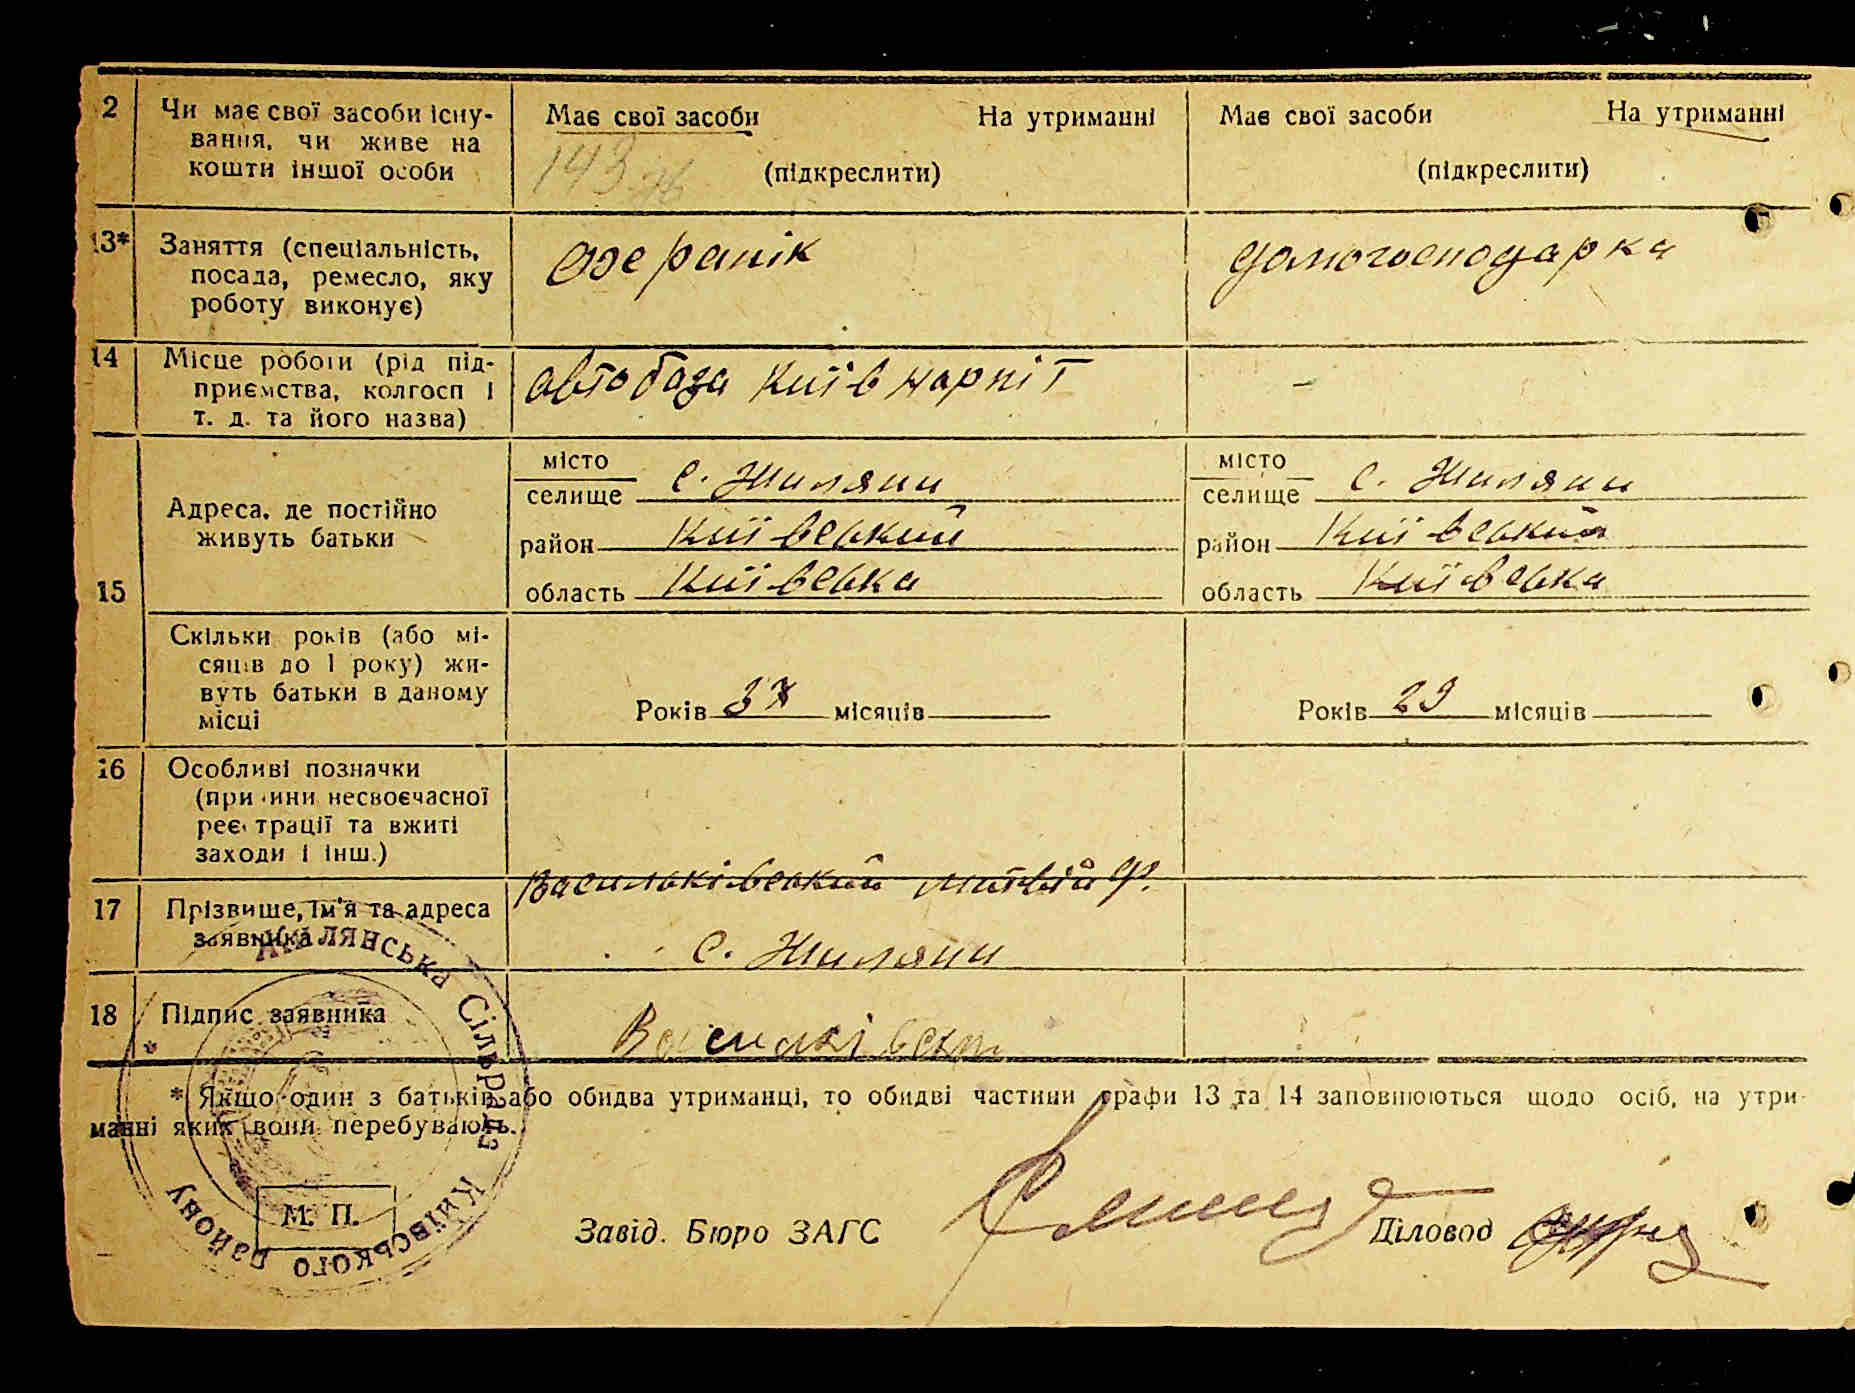 2 Чи має свої засоби існу-
вання, чи живе на
кошти іншої особи
Має свої засоби На утриманні
(підкреслити)
143
Має свої засоби На утриманні
(підкреслити)
13* Заняття (спеціальність,
посада, ремесло, яку
роботу виконує)
домогосподарка
14 Місце роботи (рід під-
приємства, колгосп і
т. д. та його назва)
автобаза Київнарпіт
-
15 Адреса, де постійно
живуть батьки
місто
селище с. Жиляни
район Київський
область Київська
місто
селище с. Жиляни
район Київський
область Київська
Скільки років (або мі-
сяців до 1 року) жи-
вуть батьки в даному
місці
Років 37 місяців
Років 29 місяців
16 Особливі позначки
(причини несвоєчасної
реєстрації та вжиті
заходи і інш.)
17 Прізвище, ім'я та адреса
заявника
Васильківський Митвій Ф.
с. Жиляни
18 Підпис заявника
* Якщо один з батьків або обидва утриманці, то обидві частини графи 13 та 14 заповнюються щодо осіб, на утри-
манні яких вони перебувають.
Жилянська Сільрада Київського району
М. П.
Завід. Бюро ЗАГС
Діловод